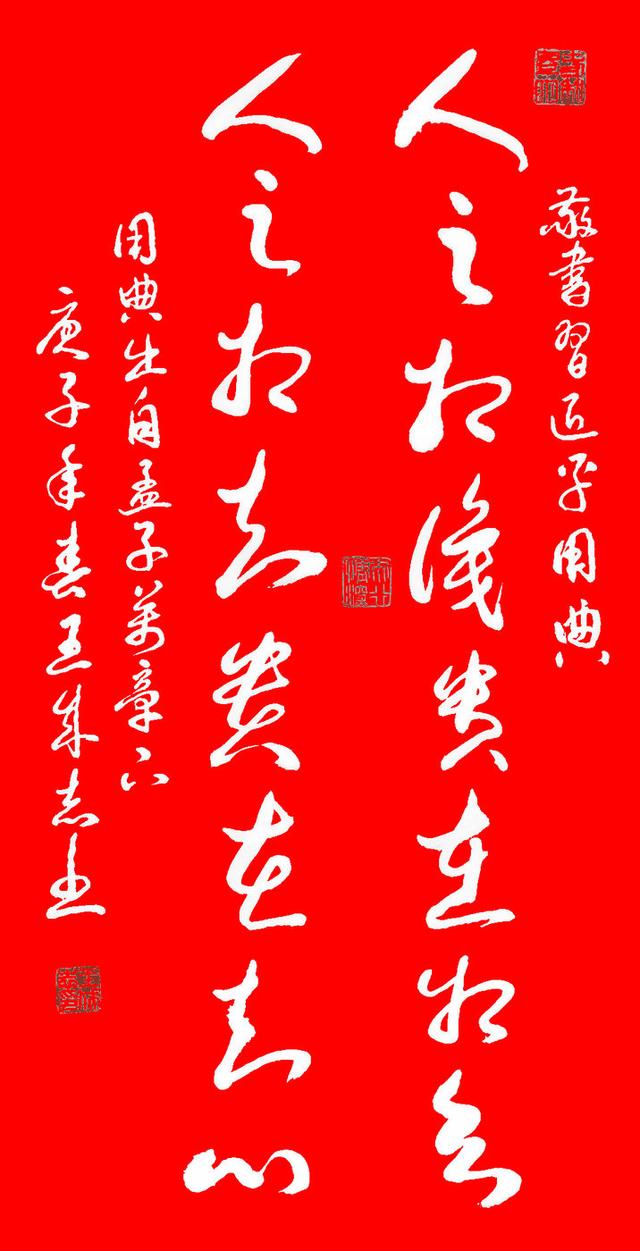 敬書習近平用典
人之相識貴在相知
人之相知貴在知心
用典出自孟子萬章下
庚子年春王成志